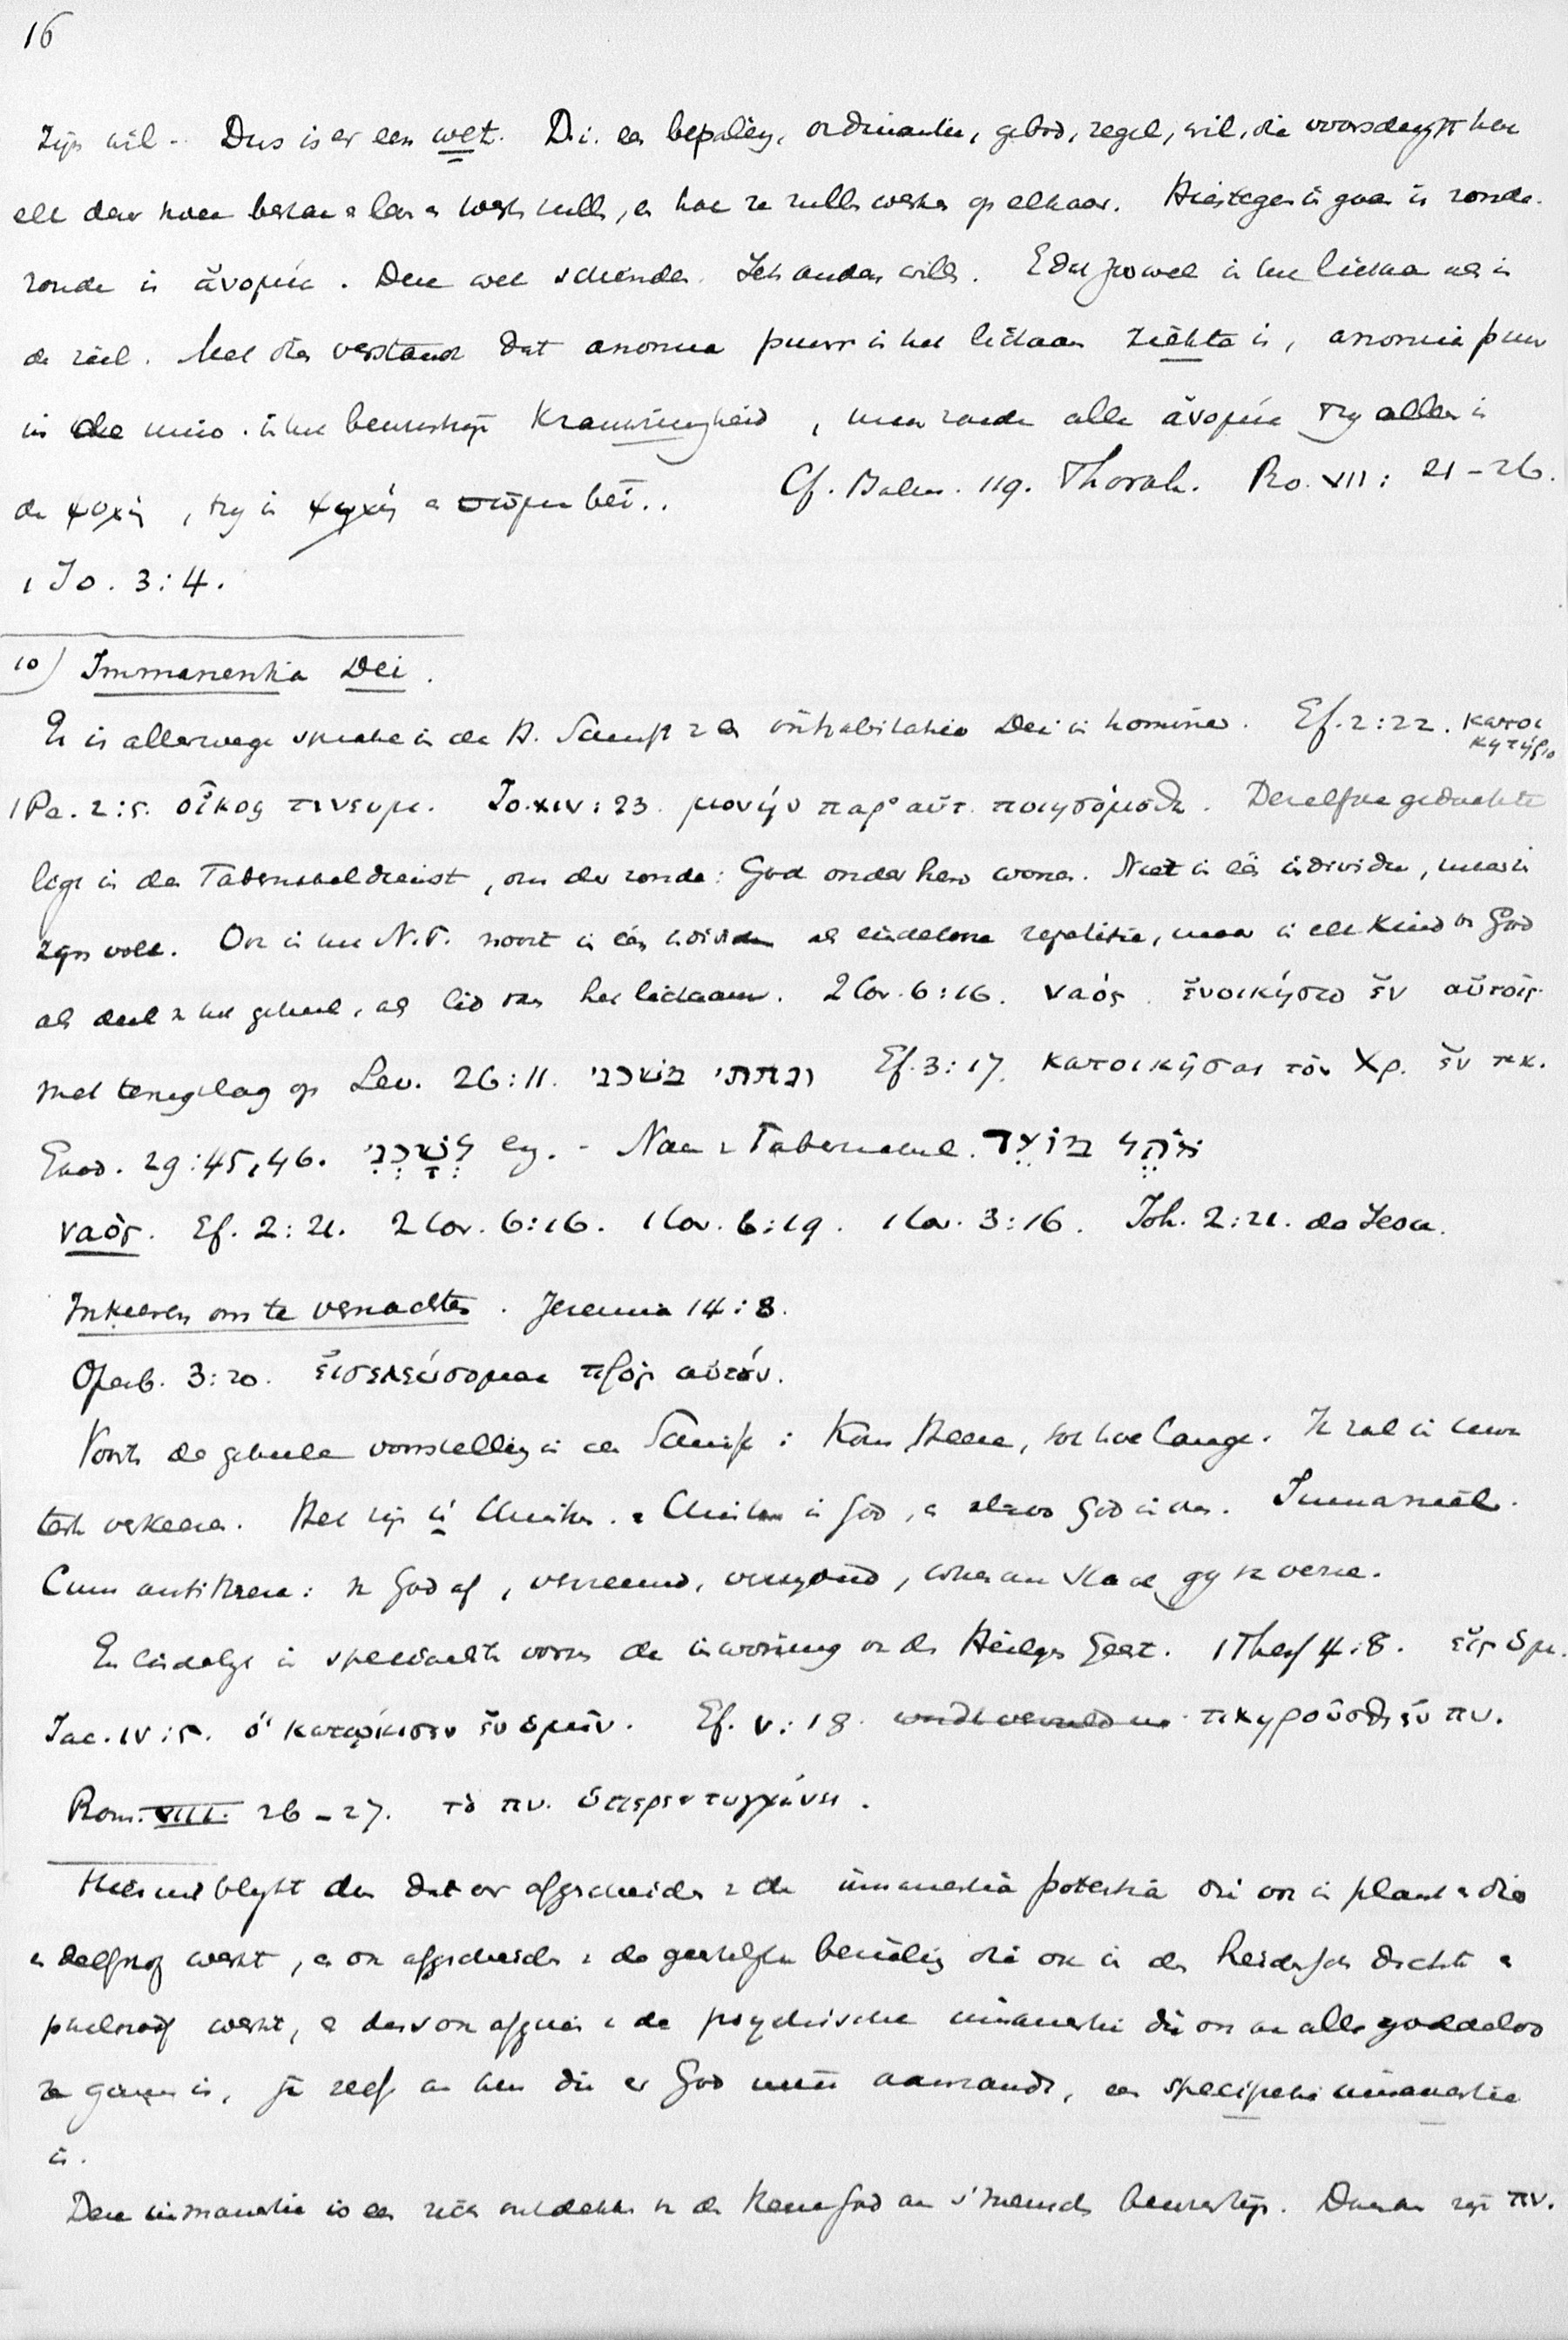 16
zijn wil. Dus is er een wet. D.i. een bepaling, ordinantie, gebod, regel, wil, die voorschrijft hoe
elk en hoe ze zulle werke op elkaar. Hiertegen in gaan is zonde.
zonde is ἀνομία. Deze wet schenden. Iets anders wille. En dat zoowel in het lichaam als in
de ziel. Met dien verstand dat anomia puur in het lichaam ziekte is, anomia puur
in het bewustzijn Krankzinnigheid, maar zonde alle ἀνομία tzy alleen in
de ψυχή, tzy in ψυχή en σῶμα bei.. Cf. Psalm. 119. Thorah. Ro. VII: 21-26.
1 Jo. 3:4.
10) Immanentia Dei.
Er is allerwege sprake in de H. Schrift v. een inhabitatio Dei in homine. Ef. 2:22. κατοι
κητήριο
1 Pe. 2:5. οἶκος πνευμ. Jo. XIV: 23. μονὴν παρ' αὐτ. ποιησόμεθα. Dezelfde gedachte
ligt in den Tabernakeldienst, om der zonde: God onder hen wone. Niet in één individu, maar in
zijn volk. Ook in het N.T. nooit in één individu als eindelooze repetitie, maar in elk kind v. God
als deel v. het geheel, als lid van het lichaam. 2 Cor. 6:16. ναός. ἐνοικήσω ἐν αὐτοῖς.
met terugslag op Lev. 26:11. ונתתי משכני Ef. 3:17. κατοικῆσαι τὸν Χρ. ἐν τ. κ.
Exod. 29:45,46. לְשָׁכְנִי eg. - Naam v. Tabernakel. אֹהֶל מוֹעֵד
ναός. Ef. 2:21. 2 Cor. 6:16. 1 Cor. 6:19. 1 Cor. 3:16. Joh. 2:21. de Jesu.
Inkeeren om te vernachten. Jeremia 14:8.
Openb. 3:20. εἰσελεύσομαι πρὸς αὐτόν.
Voorts de geheele voorstelling in de Schrift: Kom Heere, tot hoe lange. Ik zal in uwe
tent verkeere. Het zijn in Christus. Christus in God, en alzoo God in ons. Immanuël.
Cum antithesi: v. God af, vervreemd, verre.
En eindelijk in specialen vorm de inwoning v. den Heilige Geest. 1 Thess 4:8. εἰς ὑμ.
Jac. IV:5. ὃ κατῴκισεν ἐν ἡμῖν. Ef. V:18. πληροῦσθε ἐν πν.
Rom. VIII. 26-27. τὸ πν. ὑπερεντυγχάνει.
Hieruit blijkt dus dat er afgescheiden v. de immanentia potentia die ook in plant en dier
en delfstof werkt, en ook afgescheiden v. de geestelijke bezieling die ook in den heidensche dichter en
werkt, en dus ook afgezien v. de psychische immanentie die ook aan alle goddeloo
ze gemeen is, ja zelfs aan hen die er God mee aanrande, een specifieke immanentie
is.
Deze immanentie is een zich ontdekken v. den Heere God aan s'menschen bewustzijn. Daaraan zijn πν.